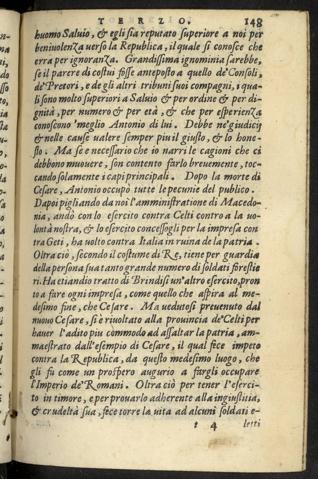 TERZO. 148
huomo Saluio, & egli sia reputato superiore a noi per
beniuolenza uerso la Republica, il quale si conosce che
erra per ignoranza. Grandissima ignominia sarebbe,
se il parere di costui fosse anteposto a quello de'Consoli,
de'Pretori, e de gli altri tribuni suoi compagni, i qua-
li sono molto superiori a Saluio & per ordine & per di-
gnità, per numero & per età, & che per esperienza
conoscono meglio Antonio di lui. Debbe ne'giudicij
& nelle cause ualere semper piu il giusto, & lo hone-
sto. Ma se è necessario che io narri le cagioni che ci
debbono muouere, son contento farlo breuemente, toc-
cando solamente i capi principali. Dopo la morte di
Cesare, Antonio occupò tutte le pecunie del publico.
Dapoi pigliando da noi l'amministratione di Macedo-
nia, andò con lo esercito contra Celti contro a la uo-
lontà nostra, & lo esercito concessogli per la impresa con
tra Geti, ha uolto contra Italia in ruina de la patria.
Oltra ciò, secondo il costume di Re, tiene per guardia
della persona sua tanto grande numero di soldati forestie
ri. Ha etiandio tratto di Brindisi un'altro esercito, pron
to a fare ogni impresa, come quello che aspira al me-
desimo fine, che Cesare. Ma uedutosi preuenuto dal
nuouo Cesare, si è riuoltato alla prouincia de'Celti per
hauer l'adito piu commodo ad assaltar la patria, am-
maestrato dall'esempio di Cesare, il qual fece impeto
contra la Republica, da questo medesimo luogo, che
gli fu come un prospero augurio a fargli occupare
l'Imperio de'Romani. Oltra ciò per tener l'eserci-
to in timore, e per prouarlo adherente alla ingiustitia,
& crudeltà sua, fece torre la uita ad alcuni soldati e-
t 4 letti